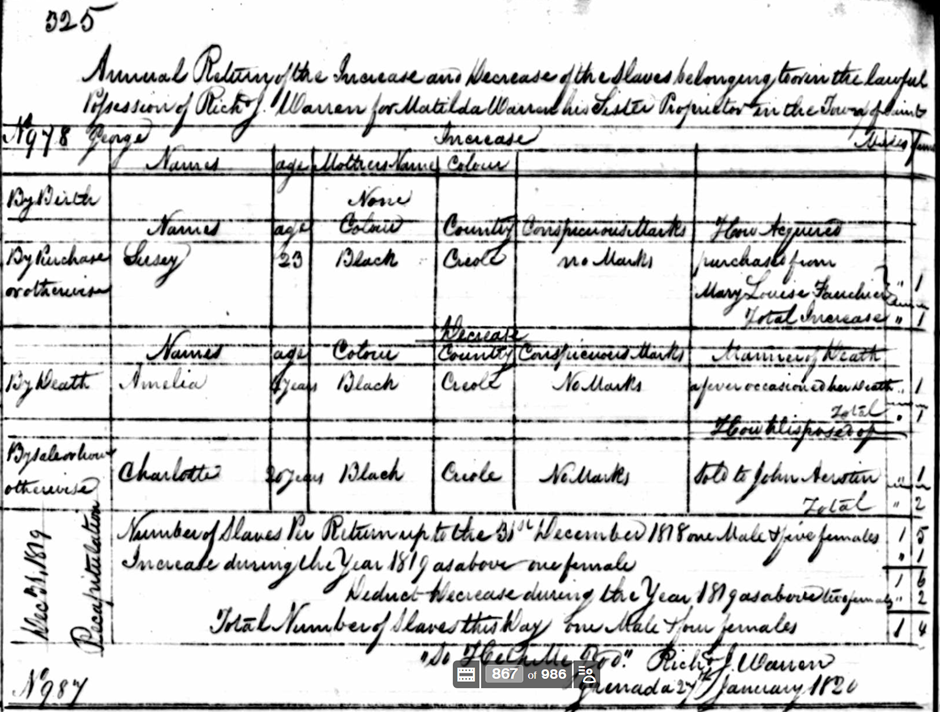 325
Annual Return of the Increase and Decrease of the Slaves belonging to or in the lawful
Possession of Richd. J. Warren for Matilda Warren his Sister Proprietor in the Town of Saint
No 978 George Increase Males fem
Names age Mothers Name Colour
By Birth None
Names age Colour Country Conspicuous Marks How Acquired
By Purchase Susey 23 Black Creole no Marks purchased from
or otherwise Mary Louise " 1
Total Increase " 1
Decrease
Names age Colour Country Conspicuous Marks Manner of Death
By Death Amelia years Black Creole No Marks a fever occasioned her Death " 1
Total " 1
How disposed of
By sale or how
otherwise Charlotte 20 years Black Creole No Marks Sold to John " 1
Total " 2
Dec 31, 1819
Recapitulation
Number of Slaves Per Return up to the 31st December 1818 one Male & five females 1 5
Increase during the Year 1819 as above one female " 1
1 6
Deduct Decrease during the Year 1819 as above two females " 2
Total Number of Slaves this Day one Male & four females 1 4
"So Help Me God." Richd. J. Warren
867 of 986
No 987 Grenada 27th January 1820